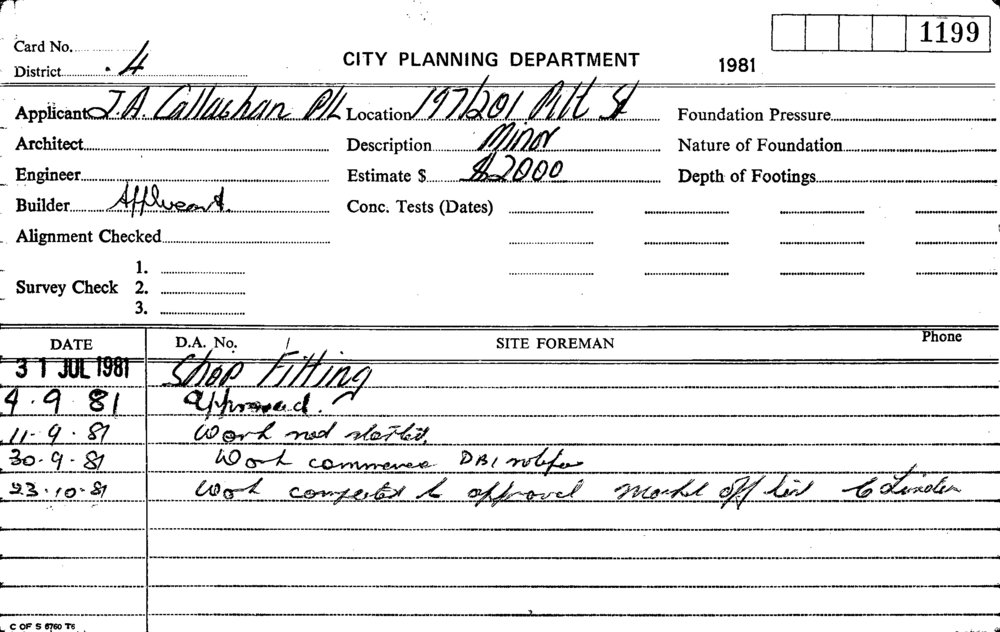 1199
Card No.
CITY PLANNING DEPARTMENT 1981
District 4
Applicant J.A. Callaghan P/L Location 197/201 Pitt St Foundation Pressure
Architect Description Minor Nature of Foundation
Engineer Estimate $ $2000 Depth of Footings
Builder Applicant. Conc. Tests (Dates)
Alignment Checked
1.
Survey Check 2.
3.
DATE D.A. No. SITE FOREMAN Phone
31 JUL 1981 Shop Fitting
4.9.81 approved.
11-9.81 Work not started.
30-9-81 Work commence DBI
23.10.81 Work completed to approval off list
C OF S 6760 T6